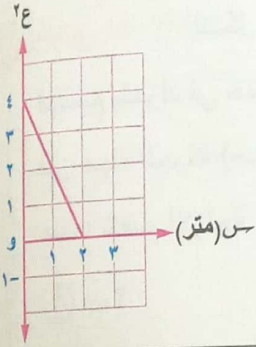 ع٢
٤
٣
٢
١
و ١ ٢ ٣ س (متر)
١-